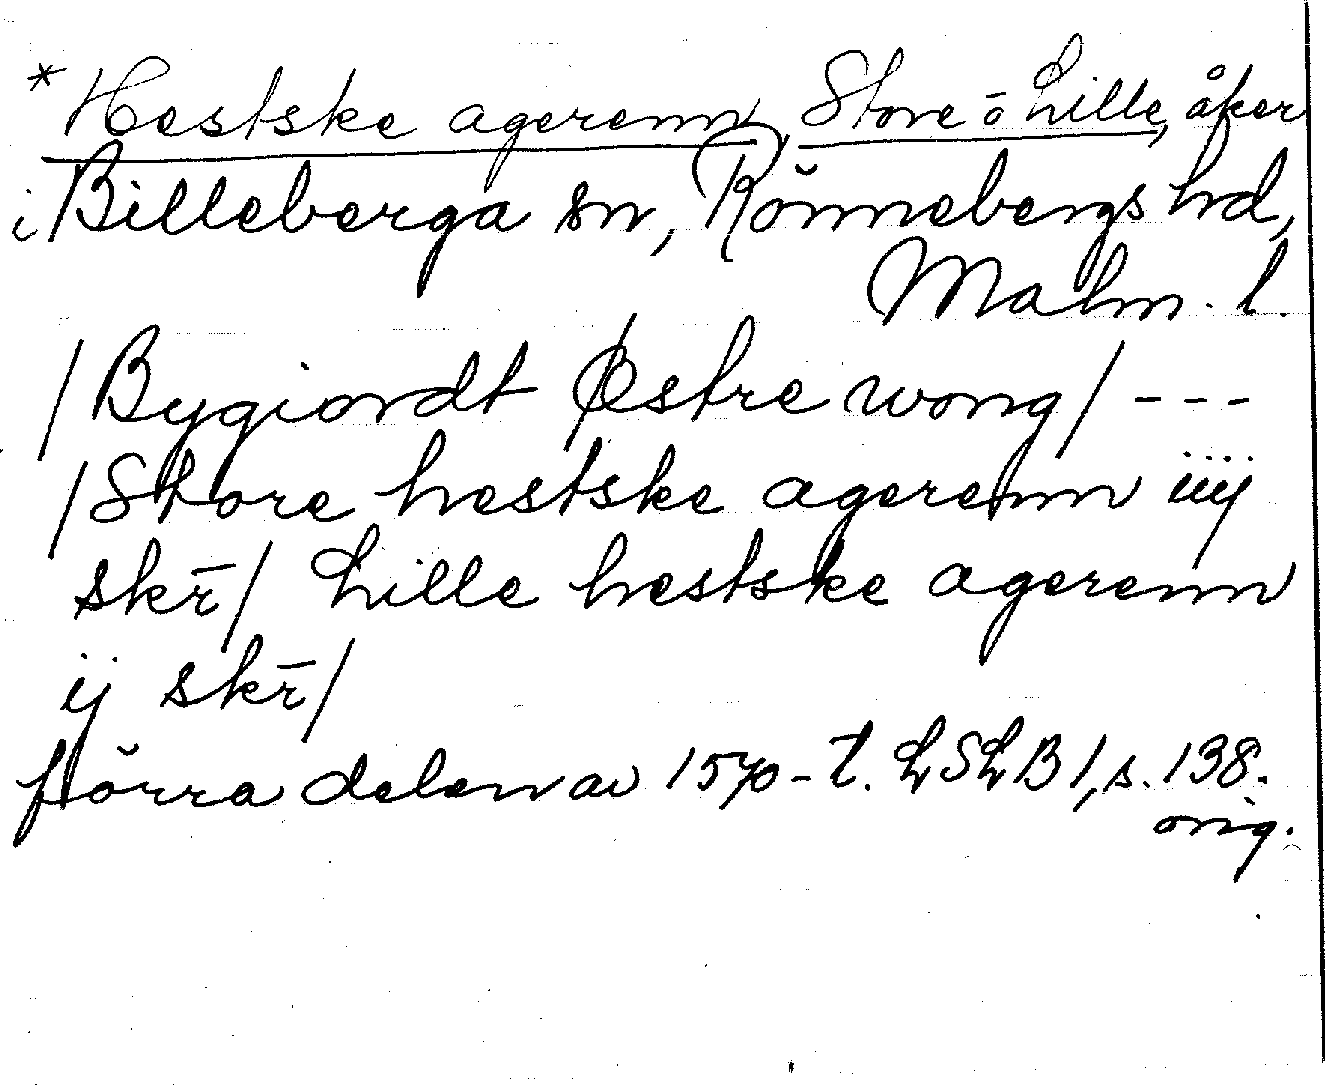 * Hestske agerenn, Store o Lille, åker
i Billeberga sn, Rönnebergs hd,
Malm. l.
/Bygiordt Østre wong/ - - -
/Store hestske agerenn iiij
skr̄/ Lille hestske agerenn
ij skr̄/
förra delen av 1570-t. LSLB 1, s. 138.
orig.